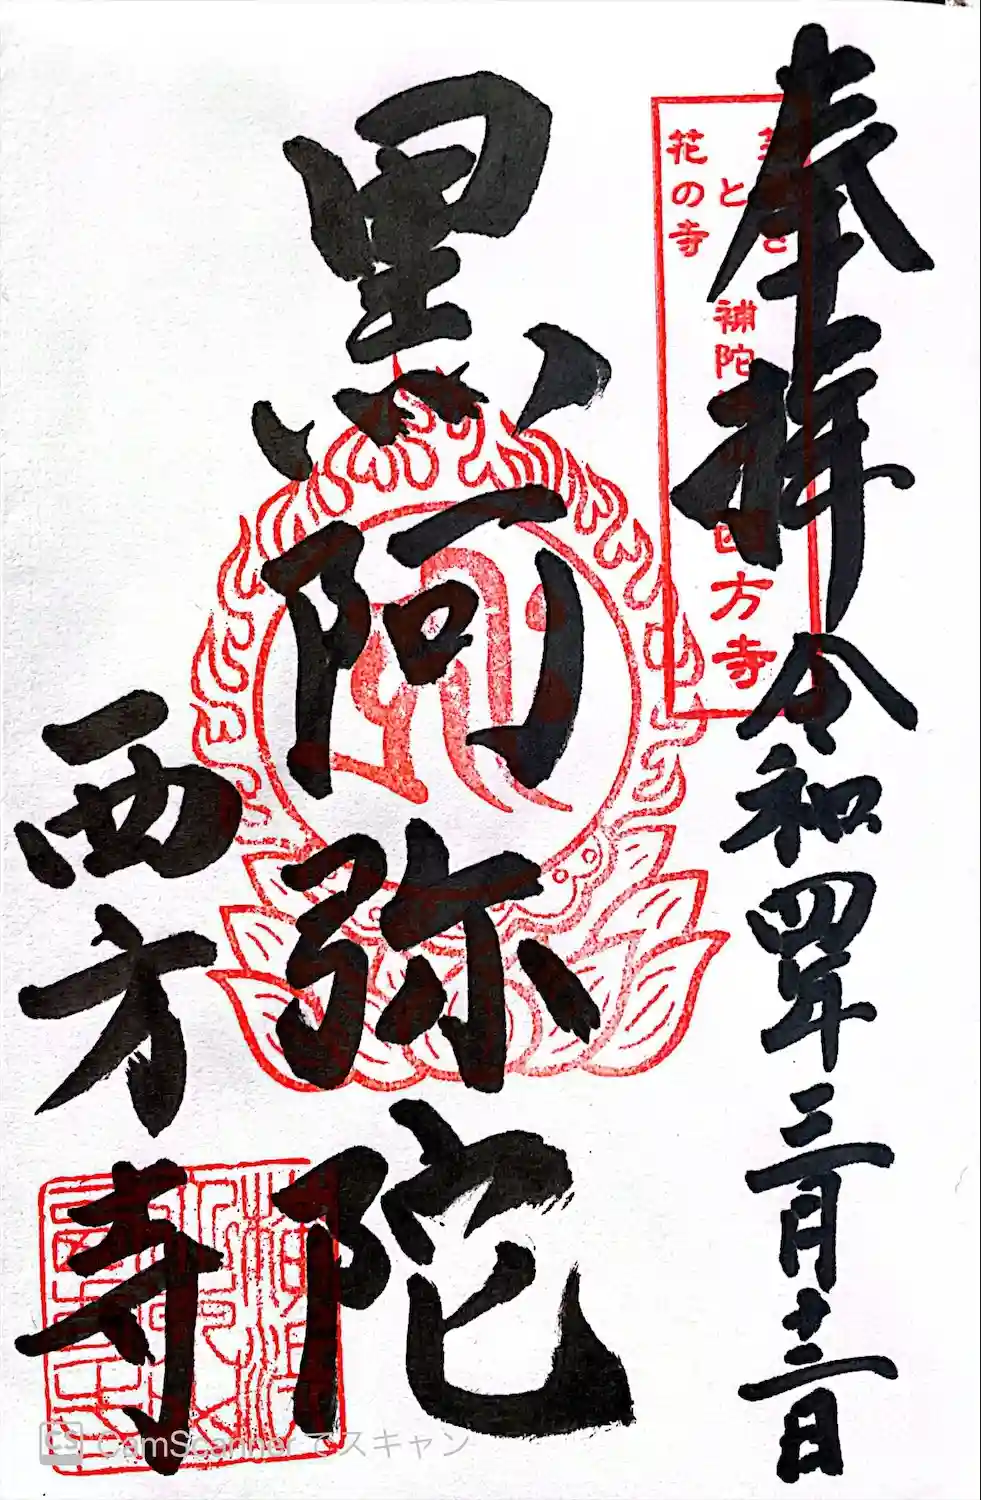 奉拝 令和四年三月十三日
と
花の寺
補陀
西方寺
黒阿弥陀
西方寺
CamScannerでスキャン